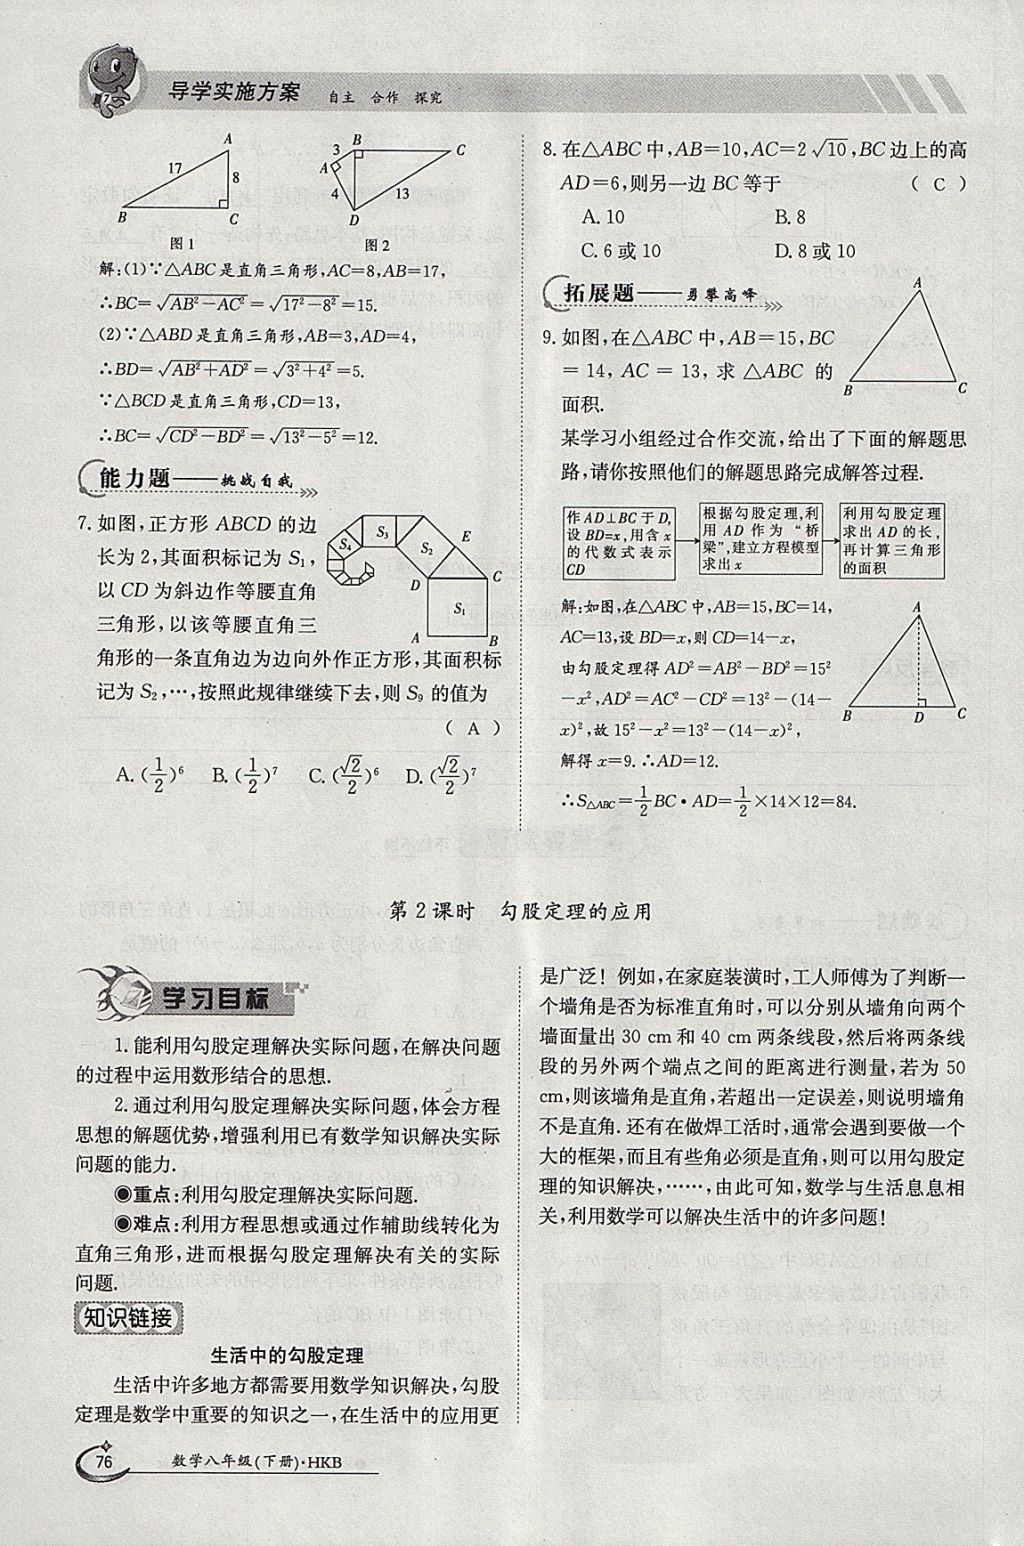 导学实施方案 自主 合作 探究
A
17
8
B
C
图1
3
B
C
A
4
13
D
图2
解:(1)∵△ABC是直角三角形,AC=8,AB=17,
∴BC=√(AB²-AC²)=√(17²-8²)=15.
(2)∵△ABD是直角三角形,AB=3,AD=4,
∴BD=√(AB²+AD²)=√(3²+4²)=5.
∵△BCD是直角三角形,CD=13,
∴BC=√(CD²-BD²)=√(13²-5²)=12.
能力题——挑战自我
7.如图,正方形ABCD的边
长为2,其面积标记为S₁,
以CD为斜边作等腰直角
三角形,以该等腰直角三
角形的一条直角边为边向外作正方形,其面积标
记为S₂,…,按照此规律继续下去,则S₉的值为
( A )
S₄
S₃
S₂
E
D
C
S₁
A
B
A.(1/2)⁶ B.(1/2)⁷ C.(√2/2)⁶ D.(√2/2)⁷
8.在△ABC中,AB=10,AC=2√10,BC边上的高
AD=6,则另一边BC等于 ( C )
A.10 B.8
C.6或10 D.8或10
拓展题——勇攀高峰
9.如图,在△ABC中,AB=15,BC
=14,AC=13,求△ABC的
面积.
A
B
C
某学习小组经过合作交流,给出了下面的解题思
路,请你按照他们的解题思路完成解答过程.
作AD⊥BC于D,
设BD=x,用含x
的代数式表示
CD
根据勾股定理,利
用AD作为“桥
梁”,建立方程模型
求出x
利用勾股定理
求出AD的长,
再计算三角形
的面积
解:如图,在△ABC中,AB=15,BC=14,
AC=13,设BD=x,则CD=14-x,
由勾股定理得AD²=AB²-BD²=15²
-x²,AD²=AC²-CD²=13²-(14-
x)²,故15²-x²=13²-(14-x)²,
解得x=9.∴AD=12.
∴S△ABC=1/2BC·AD=1/2×14×12=84.
A
B
D
C
第2课时 勾股定理的应用
学习目标
1.能利用勾股定理解决实际问题,在解决问题
的过程中运用数形结合的思想.
2.通过利用勾股定理解决实际问题,体会方程
思想的解题优势,增强利用已有数学知识解决实际
问题的能力.
◉重点:利用勾股定理解决实际问题.
◉难点:利用方程思想或通过作辅助线转化为
直角三角形,进而根据勾股定理解决有关的实际
问题.
知识链接
生活中的勾股定理
生活中许多地方都需要用数学知识解决,勾股
定理是数学中重要的知识之一,在生活中的应用更
是广泛!例如,在家庭装潢时,工人师傅为了判断一
个墙角是否为标准直角时,可以分别从墙角向两个
墙面量出30 cm和40 cm两条线段,然后将两条线
段的另外两个端点之间的距离进行测量,若为50
cm,则该墙角是直角,若超出一定误差,则说明墙角
不是直角.还有在做焊工活时,通常会遇到要做一个
大的框架,而且有些角必须是直角,则可以用勾股定
理的知识解决,……,由此可知,数学与生活息息相
关,利用数学可以解决生活中的许多问题!
76 数学八年级(下册)·HKB